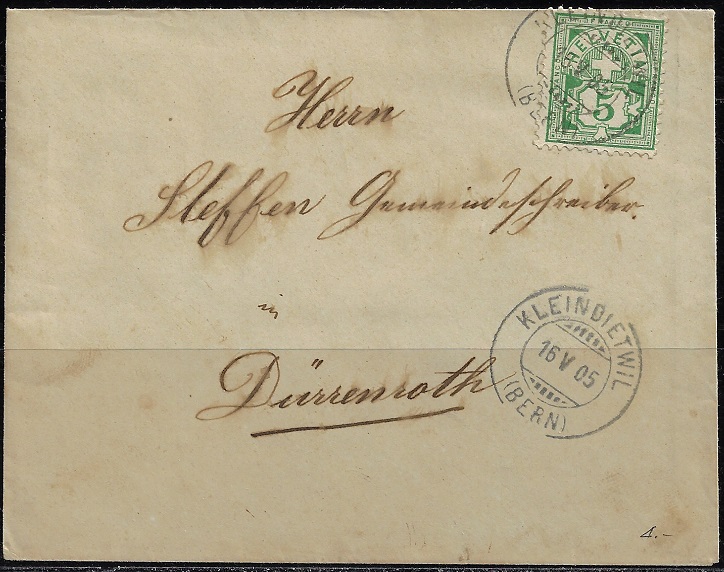 FRANCO
HELVETIA
5
Herrn
Steffen Gemeindeschreiber.
in
Dürrenroth
KLEINDIETWIL
16 V 05
(BERN)
4.-